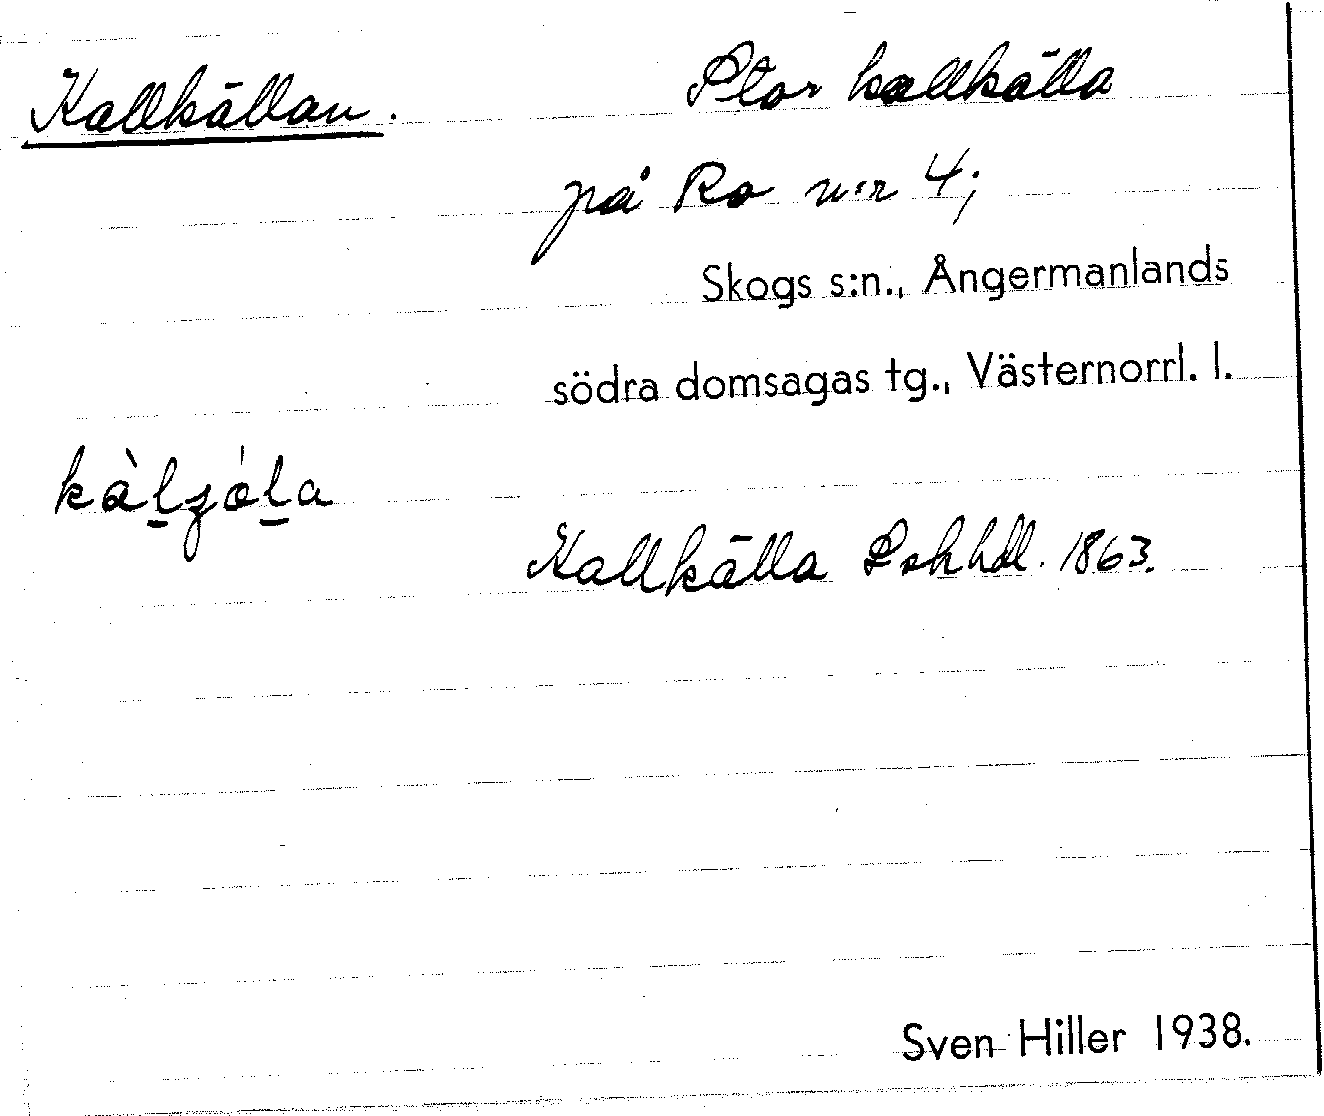 Kallkällan. Stor kallkälla
på Ro n:r 4;
Skogs s:n., Ångermanlands
södra domsagas tg., Västernorrl. l.
Kallkälla Lskhdl. 1863.
Sven Hiller 1938.